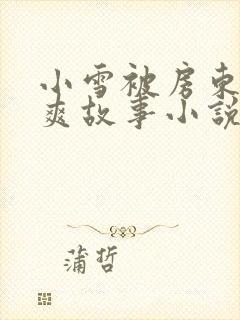 小雪被房东
爽故事小説
蒲哲